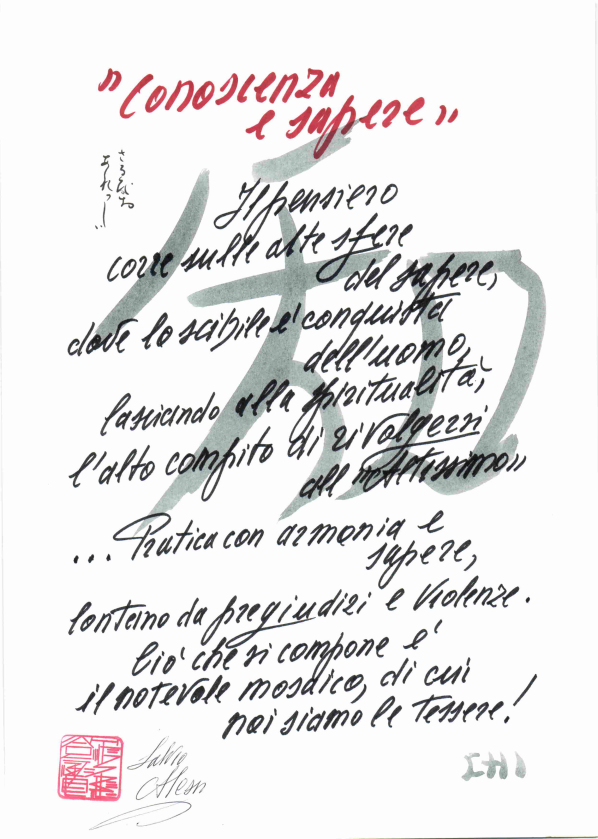 "Conoscenza
e sapere"
Il pensiero
corre sulle alte sfere
del sapere,
dove lo scibile e' conquista
dell'uomo,
lasciando alla spiritualità,
l'alto compito di rivolgersi
all'"Altissimo"
... Pratica con armonia e
sapere,
lontano da pregiudizi e violenze.
Ciò che si compone e'
il notevole mosaico, di cui
noi siamo le tessere!
知